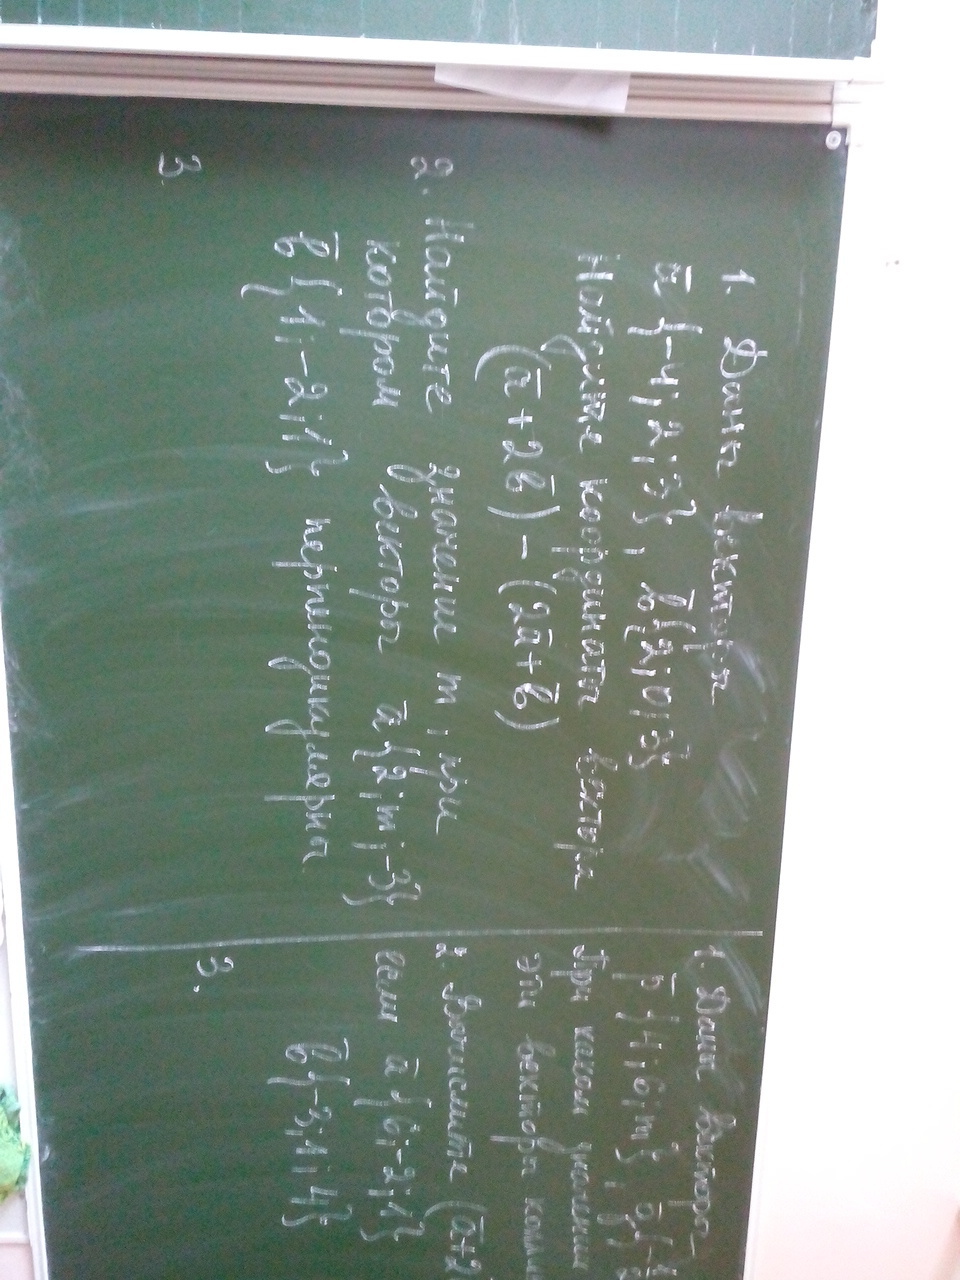 1. Даны вектора
ā {-4; 2; 3}, b̄ {2; 0; 3}
Найдите координаты вектора
(ā + 2b̄) - (2ā + b̄)
2. Найдите значение m, при
котором вектора ā {2; m; -3}
b̄ {1; -2; 1} перпендикулярны
3.
1. Даны вектора
p̄ {4; 6; m},
При каком значении
эти вектора
2. Вычислите (ā + 2
если ā {6; -2; 1}
b̄ {-3; 1; 4}
3.